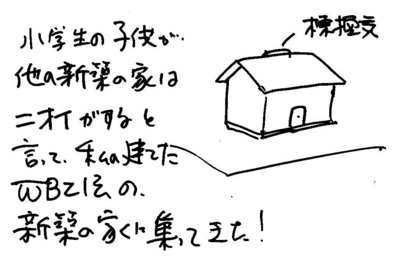 小学生の子供が、
他の新築の家は
ニオイがすると
言って、私の建てた
WB工法の、
新築の家に集ってきた!